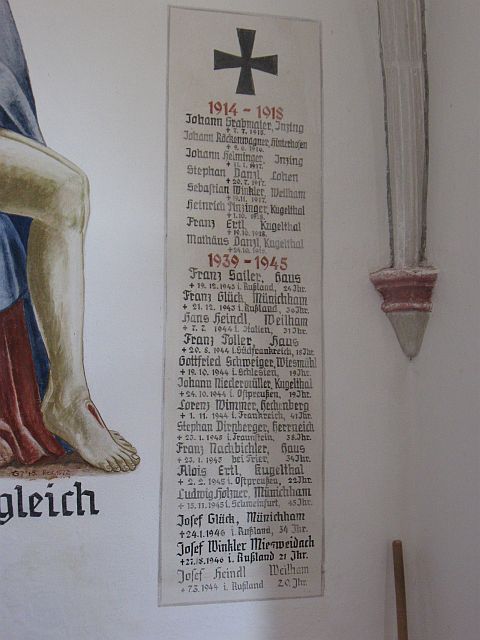 1914 - 1918
Johann Grabmaier, Inzing
+ 7. 7. 1915.
Johann Röckenwagner, Hinterhofen
+ 9. 6. 1916.
Johann Helminger, Inzing
1917.
Stephan Danzl, Lohen
+ 20. 7. 1917.
Sebastian Winkler, Weilham
+ 19.11. 1917
Heinrich Pinzinger, Kugelthal
+ 1.10. 1918.
Franz Ertl, Kugelthal
+ 19.10. 1918.
Mathäus Danzl, Kugelthal
+ 24.10. 1918.
1939 - 1945
Franz Sailer, Haus
+ 19. 12. 1943 i. Rußland, 24 Jhr.
Franz Glück, Münichham
+ 21. 12. 1943 i. Rußland, 30 Jhr.
Hans Heindl, Weilham
+ 7. 7. 1944 i. Italien, 31 Jhr.
Franz Toller, Haus
+ 20. 8. 1944 i. Südfrankreich, 18 Jhr.
Gottfried Schweiger, Wiesmühl
+ 19. 10. 1944 i. Schlesien, 19 Jhr.
Johann Niedermüller, Kugelthal
+ 24. 10. 1944 i. Ostpreußen, 19 Jhr.
Lorenz Wimmer, Heckenberg
+ 1. 11. 1944 i. Frankreich, 41 Jhr.
Stephan Dirnberger, Herrneich
+ 23. 1. 1945 i. Traunstein, 38 Jhr.
Franz Nachbichler, Haus
+ 23. 1. 1945 bei Trier, 34 Jhr.
Alois Ertl, Kugelthal
+ 2. 2. 1945 i. Ostpreußen, 22 Jhr.
Ludwig Münichham
+ 15. 11. 1945 i. Schweinfurt, 45 Jhr.
Josef Glück, Münichham
+ 24.1.1946 i. Rußland, 34 Jhr.
Josef Winkler Miesweidach
+ 27.8.1946 i. Rußland 21 Jhr.
Josef Heindl Weilham
+ 7.3. 1944 i. Rußland 20. Jhr.
gleich